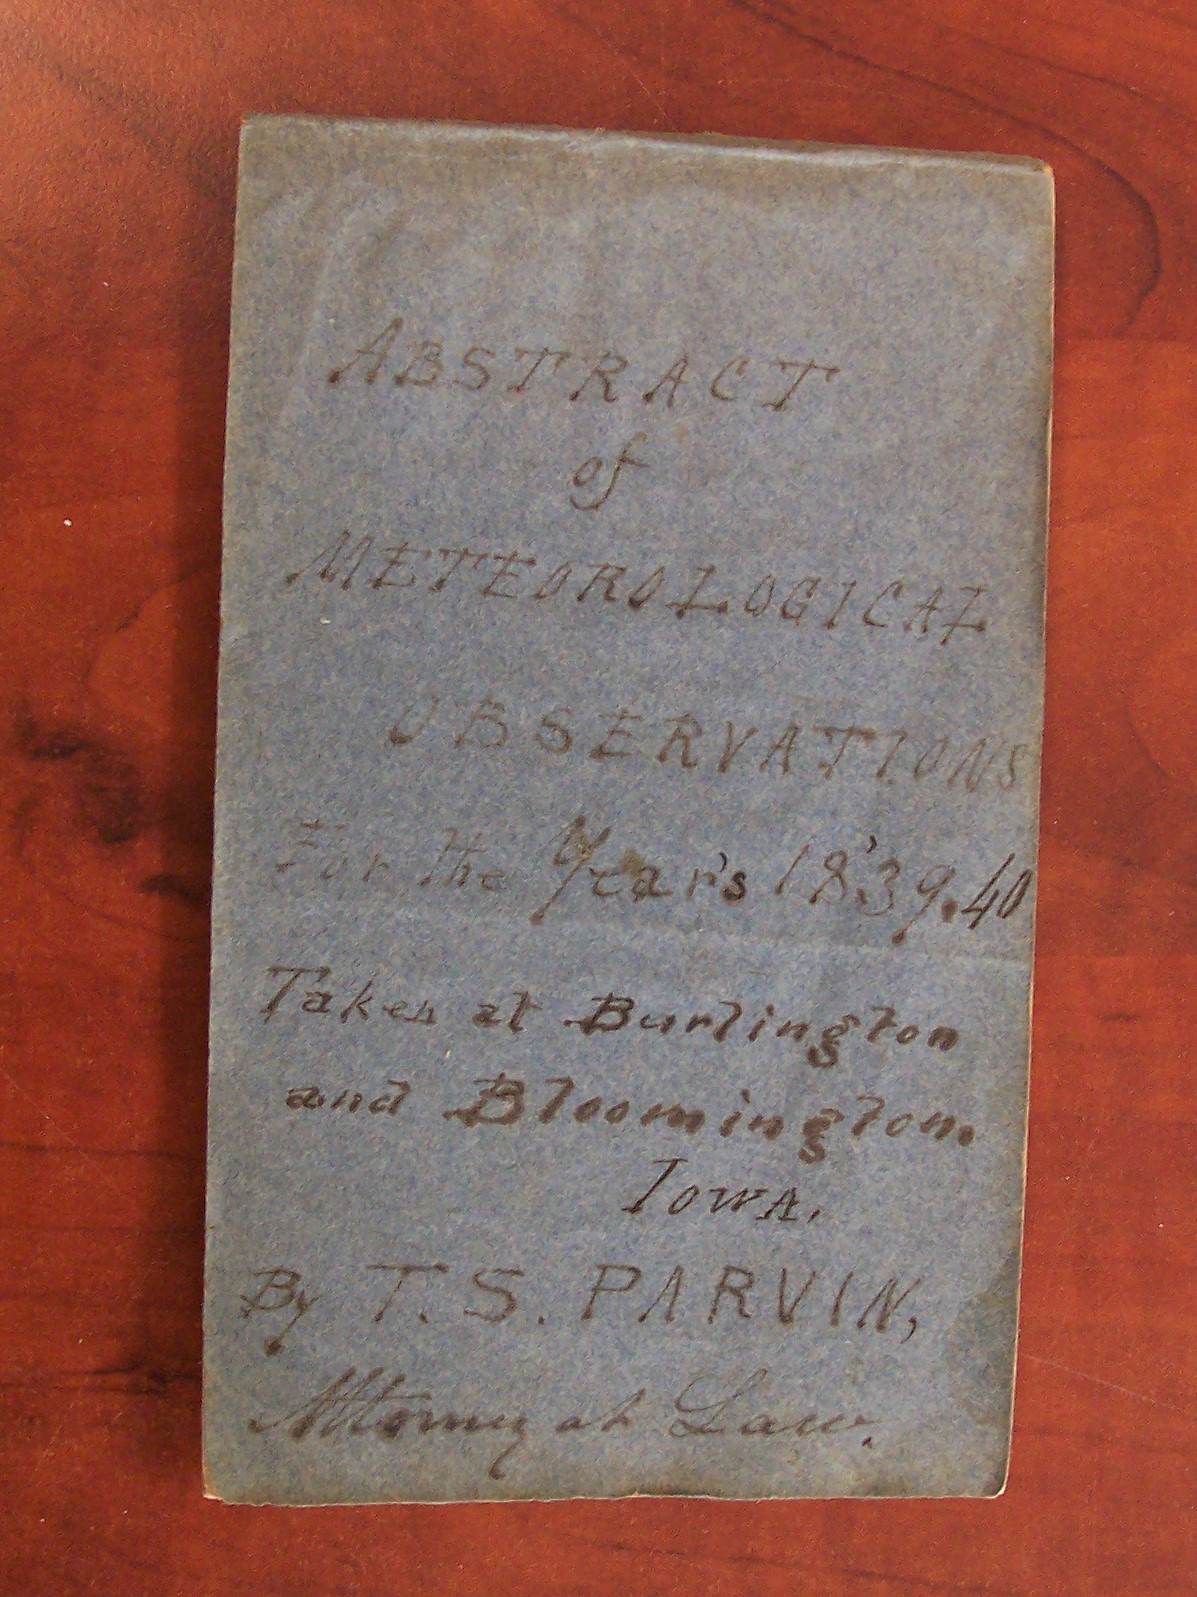 ABSTRACT
of
METEOROLOGICAL
OBSERVATIONS
For the Year's 18'39.40
Taken at Burlington
and Bloomington.
Iowa.
By T. S. PARVIN,
Attorney at Law.